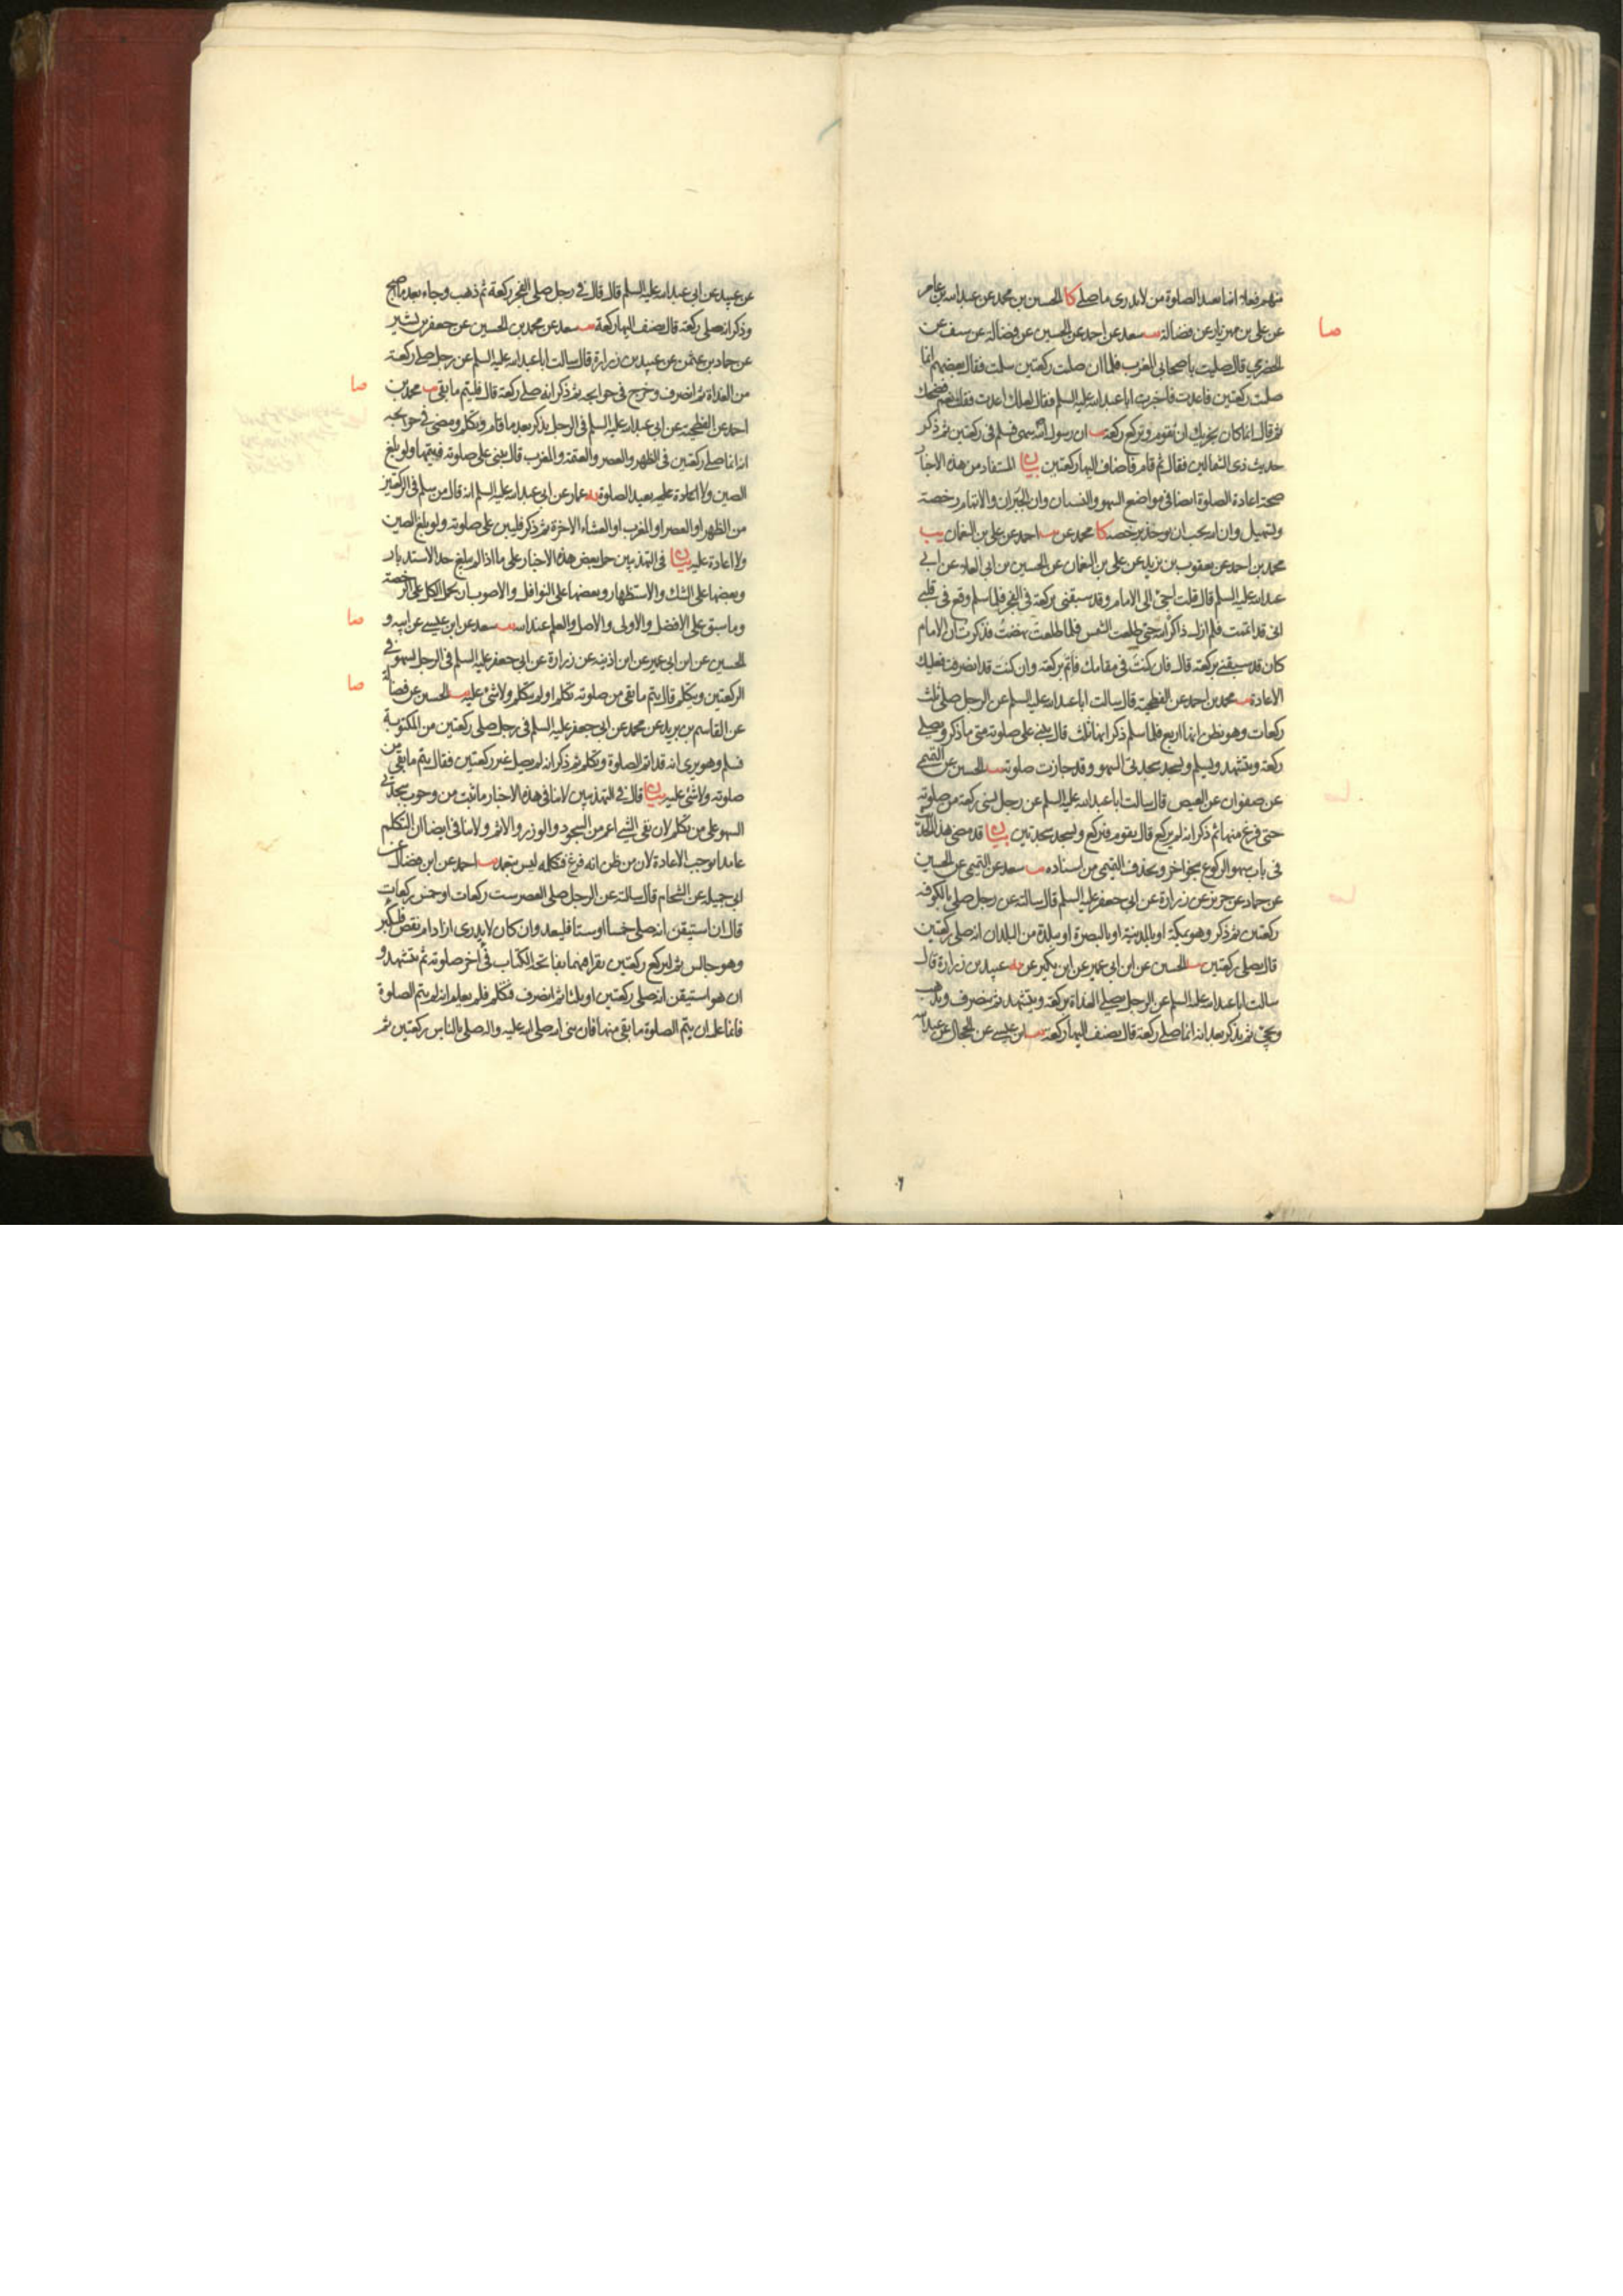 منهم فعاد انما يعيد الصلوة من لا يدرى ما صلى كا الحسين بن محمد عن عبد الله بن عامر
عن على بن مهزيار عن فضالة يب سعد عن احمد عن الحسين عن فضالة عن سيف عن
صا
الحضرمي قال صليت باصحابي المغرب فلما ان صليت ركعتين سلمت فقال بعضهم انما
صليت ركعتين فاعدت فاخبرت ابا عبد الله عليه السلم فقال لعلك اعدت فقلت نعم فضحك
ثم قال انما كان يجزيك ان تقوم وتركع ركعة يب ان رسول الله سهى فسلم فى ركعتين ثم ذكر
حديث ذى الشمالين فقال ثم قام فاضاف اليها ركعتين بيان المستفاد من هذه الاخبار
صحة اعادة الصلوة ايضا فى مواضع السهو والنسيان وان الجبران والاتمام رخصة
وتسهيل وان الله يحب ان يوخذ برخصه كا محمد عن يب احمد عن على بن النعمان يب
محمد بن احمد عن يعقوب بن يزيد عن على بن النعمان عن الحسين بن ابى العلاء عن ابي
عبد الله عليه السلم قال قلت اجئ الى الامام وقد سبقنى بركعة فى الفجر فلما سلم وقع فى قلبي
انى قد اتممت فلم ازل ذاكرا لله حتى طلعت الشمس فلما طلعت نهضت فذكرت ان الامام
كان قد سبقنى بركعة قال فان كنت فى مقامك فاتم بركعة وان كنت قد انصرفت فعليك
الاعادة يب محمد بن احمد عن الفطحية قال سالت ابا عبد الله عليه السلم عن الرجل صلى ثلث
ركعات وهو يظن انها اربع فلما سلم ذكر انها ثلث قال يبنى على صلوته متى ما ذكر ويصلي
ركعة ويتشهد ويسلم ويسجد سجدتى السهو وقد جازت صلوته يب الحسين عن
عن صفوان عن العيص قال سالت ابا عبد الله عليه السلم عن رجل نسى ركعة من صلوته
حتى فرغ منها ثم ذكر انه لم يركع قال يقوم فيركع ويسجد سجدتين بيان قد مضى هذا الحديث
فى باب سهو الركوع بنحو اخر وبحذف من اسناده يب سعد عن التميمى عن الحسين
عن حماد عن حريز عن زرارة عن ابى جعفر عليه السلم قال سالته عن رجل صلى بالكوفة
ركعتين ثم ذكر وهو بمكة او بالمدينة او بالبصرة او ببلدة من البلدان انه صلى ركعتين
قال يصلى ركعتين يب الحسين عن ابن ابى عمير عن ابن بكير عن يه عبيد بن زرارة قال
سالت ابا عبد الله عليه السلم عن الرجل يصلى الغداة ركعة ويتشهد ثم ينصرف ويذهب
ويجئ ثم يذكر بعد انه انما صلى ركعة قال يضيف اليها ركعة يب ابن عيسى عن الحجال عن عبد الله
عن عبيد عن ابى عبد الله عليه السلم قال قال فى رجل صلى الفجر ركعة ثم ذهب وجاء بعد ما اصبح
وذكر انه صلى ركعة قال يضيف اليها ركعة يب سعد عن محمد بن الحسين عن جعفر بن بشير
عن حماد بن عثمن عن عبيد بن زرارة قال سالت ابا عبد الله عليه السلم عن رجل صلى ركعة
من الغداة ثم انصرف وخرج فى حوايجه ثم ذكر انه صلى ركعة قال فليتم ما بقى يب محمد بن
صا
احمد عن الفطحية عن ابى عبد الله عليه السلم فى الرجل يذكر بعد ما قام وتكلم ومضى فى حوايجه
انه انما صلى ركعتين فى الظهر والعصر والعتمة والمغرب قال يبنى على صلوته فيتمها ولو بلغ
الصين ولا اعادة عليه يعيد الصلوة يه عمار عن ابى عبد الله عليه السلم انه قال من سلم فى الركعتين
من الظهر او العصر او المغرب او العشاء الاخرة ثم ذكر فليبن على صلوته ولو بلغ الصين
ولا اعادة عليه بيان فى التهذيبين حمل بعض هذه الاخبار على ما اذا لم يبلغ حد الاستدبار
وبعضها على الشك والاستظهار وبعضها على النوافل والاصوب ان يحمل الكل على الرخصة
وما سبق على الافضل والاولى والاصل والعلم عند الله يب سعد عن ابن عيسى عن ابيه و
صا
الحسين عن ابن ابى عمير عن ابن اذينة عن زرارة عن ابى جعفر عليه السلم فى الرجل يسهو فى
الركعتين ويتكلم قال يتم ما بقى من صلوته تكلم او لم يتكلم ولا شئ عليه يب الحسين عن فضالة
صا
عن القاسم بن بريد عن محمد عن ابى جعفر عليه السلم فى رجل صلى ركعتين من المكتوبة
فسلم وهو يرى انه قد اتم الصلوة وتكلم ثم ذكر انه لم يصل غير ركعتين فقال يتم ما بقى من
صلوته ولا شئ عليه بيان قال فى التهذيبين لا ينافى هذه الاخبار ما ثبت من وجوب سجدتى
السهو على من تكلم لان نفى الشئ اعم من السجود والوزر والاثم ولا ينافى ايضا ان التكلم
عامدا يوجب الاعادة لان من ظن انه فرغ فتكلمه ليس بتعمد يب احمد عن ابن فضال عن
ابى جميلة عن الشحام قال سالته عن الرجل صلى العصر ست ركعات او خمس ركعات
قال ان استيقن انه صلى خمسا او ستا فليعد وان كان لا يدرى ازاد ام نقص فليكبر
وهو جالس ثم ليركع ركعتين يقرا فيهما بفاتحة الكتاب فى اخر صلوته ثم يتشهد و
ان هو استيقن انه صلى ركعتين او ثلثا ثم انصرف فتكلم فلم يعلم انه لم يتم الصلوة
فانما عليه ان يتم الصلوة ما بقى منها فان نبى الله صلى الله عليه واله صلى بالناس ركعتين ثم